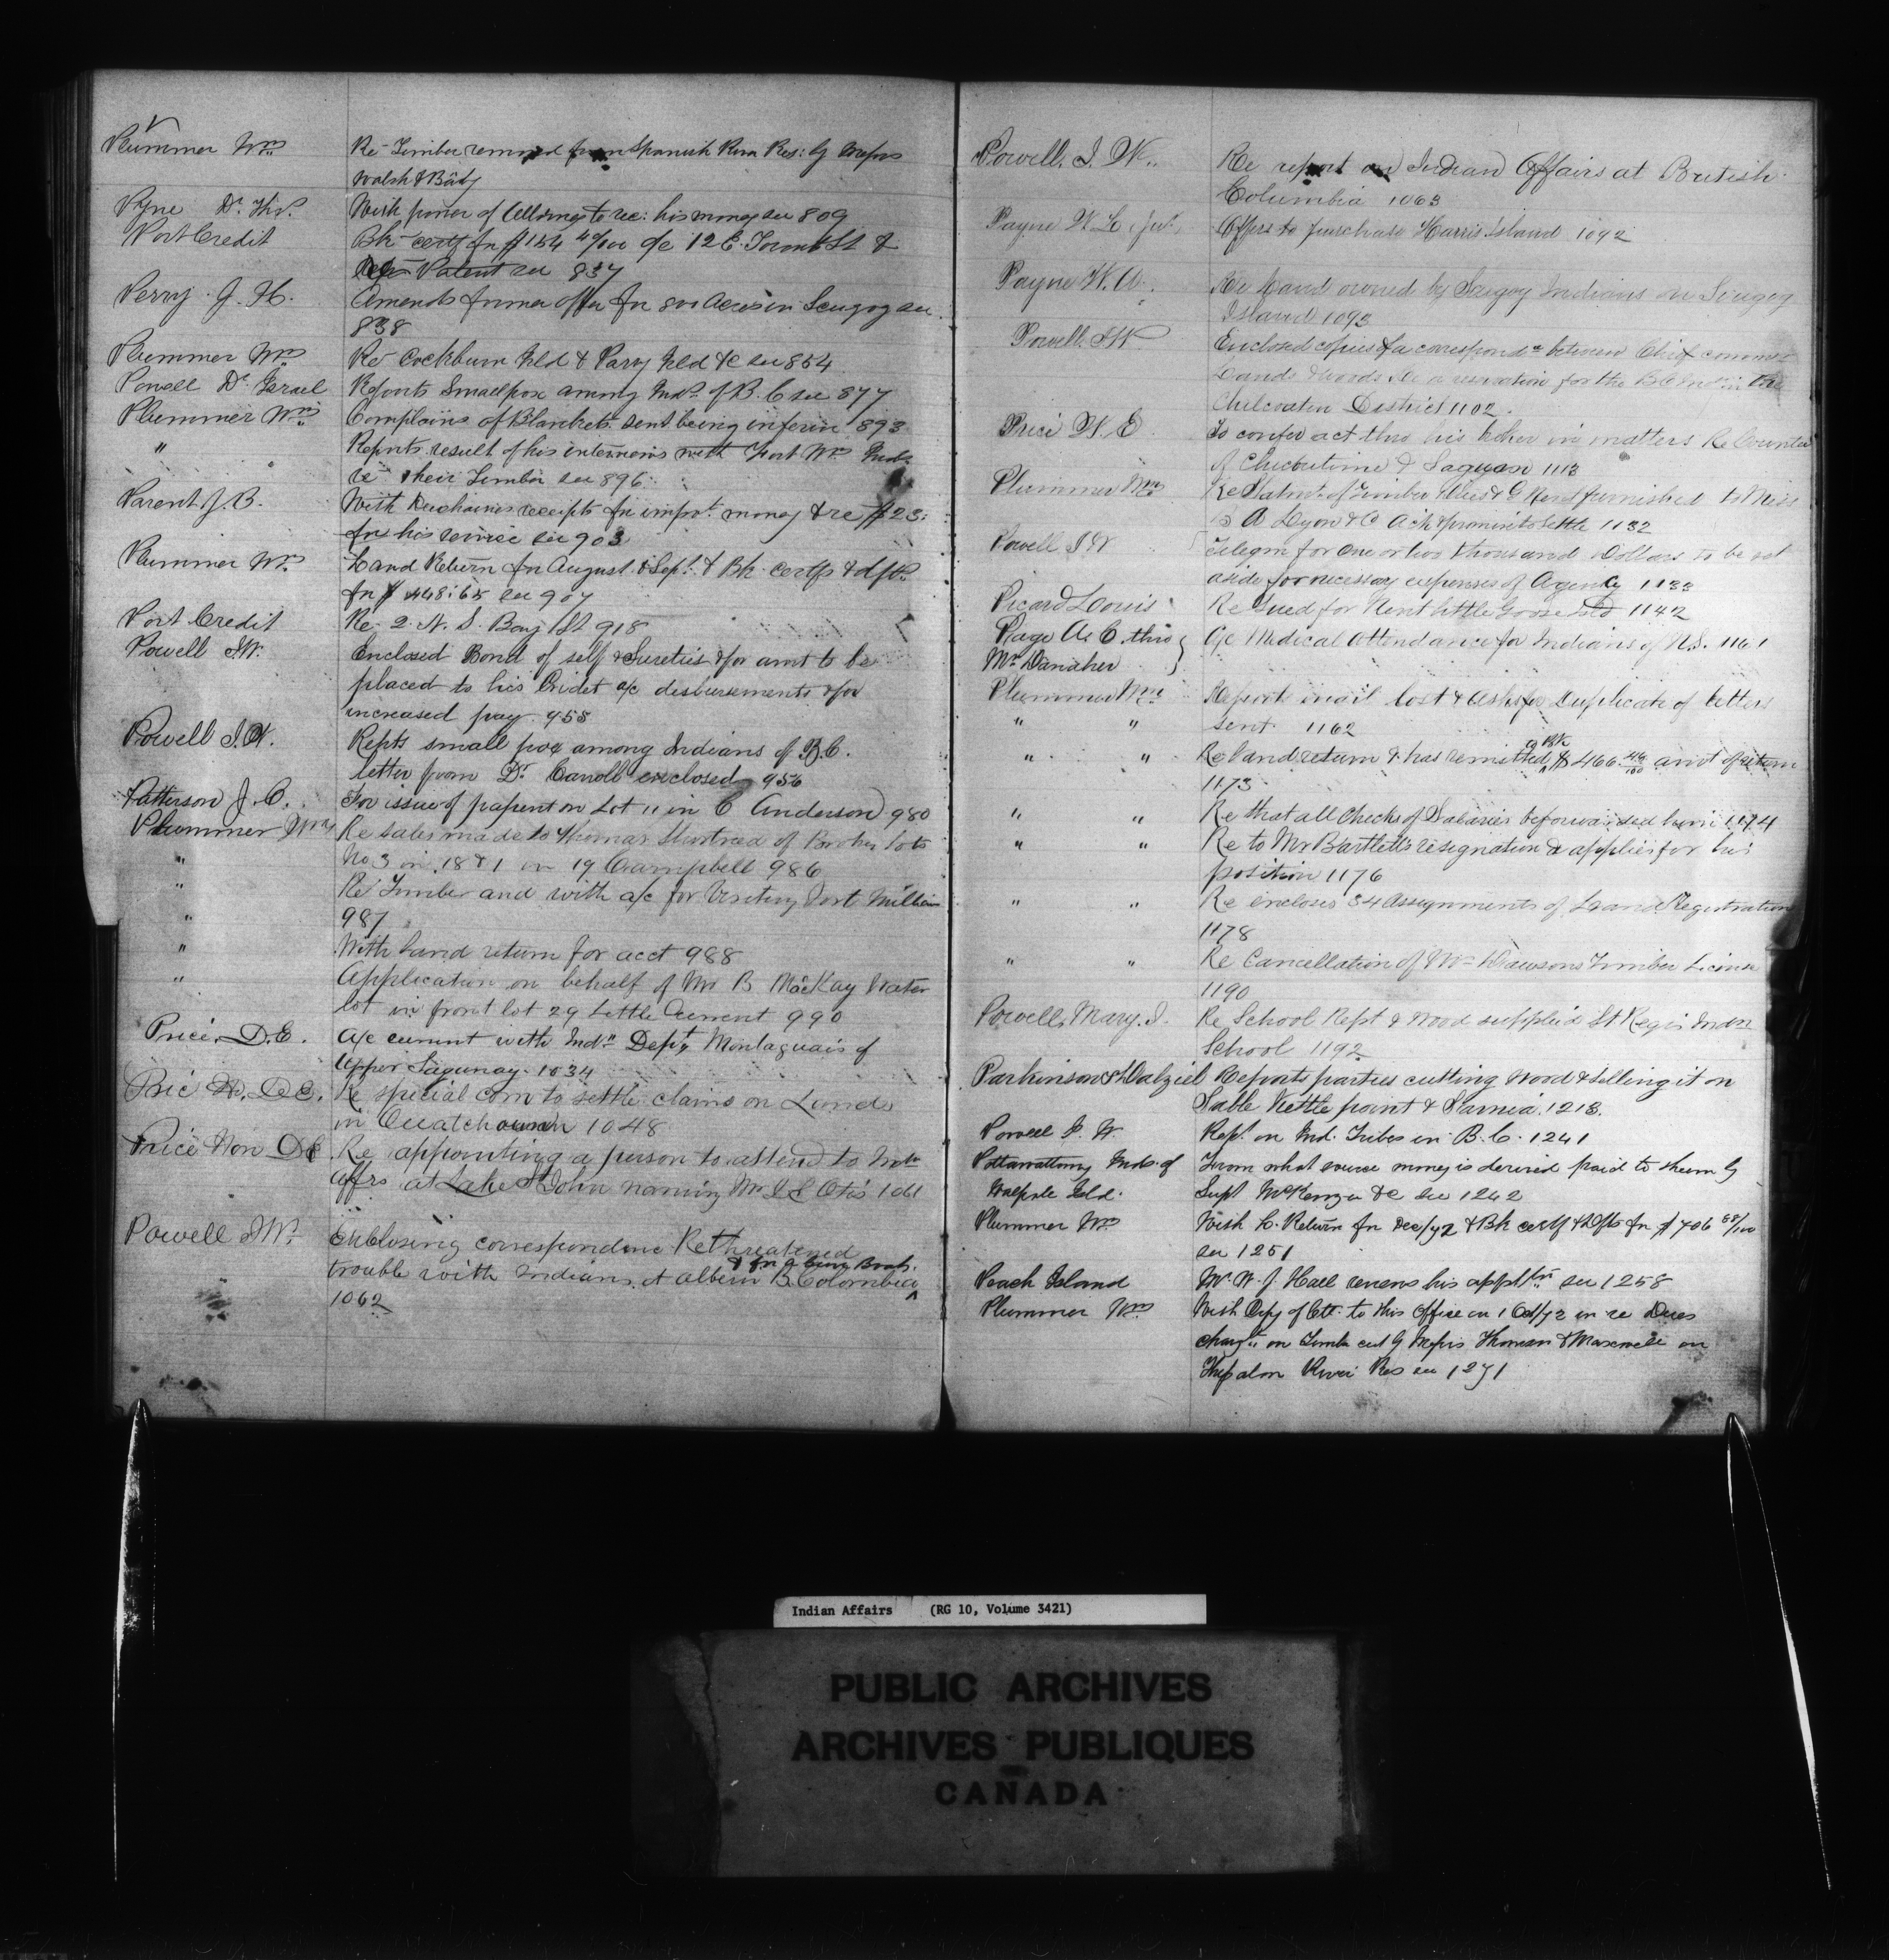 Plummer Wm Re Timber removed from Spanish River Res: by Messrs
Walsh &
Pyne Dr. Ths. With power of to rec: his money see 809
Port Credit Bk certf for $154 40/100 a/c 12 E. Toronto St &
Patent see 837
Perry J. H. Amends former offer for 800 Acres in Scugog see
838
Plummer Wm Re Cockburn Isld & Parry Isld &c see 854
Powell Dr. Israel Reports Smallpox among Inds. of B.C. see 877
Plummer Wm Complains of Blankets sent being inferior 893
" Reports result of his interviews with Fort Wm Inds
re their Timber see 896
Parent J. B. With Duchaines receipts for impvt. money & re $23:
for his service see 903
Plummer Wm. Land Return for August & Sept. & Bk. certfs & dfts
for $448:65 see 907
Port Credit Re 2. N. S. Bay St 918
Powell I.W. Enclosed Bond of self & Sureties & for amt to be
placed to his Credit a/c disbursements & for
increased pay. 955
Powell I.W. Repts small pox among Indians of B.C.
letter from Dr. Carroll enclosed 956
Patterson J. C. For issue of patent on Lot 11 in C Anderson 980
Plummer Wm Re sales made to Thomas of Broken lots
No 3 in 18 & 1 in 19 Campbell 986
" Re Timber and with a/c for Visiting Fort William
987
" With land return for acct 988
" Application on behalf of Mr B MacKay Water
lot in front lot 29 Little Current 990
Price, D.E. A/c current with Indn Dept, Montagnais of
Upper Sagunay. 1034
Price H. D.E. Re special com to settle claims on Lands
in 1048
Price Hon D E Re appointing a person to attend to Indn
affrs at Lake St John naming Mr L E Otis 1061
Powell I.W. Enclosing correspondence Re threatened
trouble with Indians at Alberni B. Colombia & for a Gun Boat.
1062
Powell, I. W. Re report on Indian Affairs at British
Columbia 1063
Payne W. L. Offers to purchase Harris Island 1092
Payne W. A. Re Land owned by Scugog Indians on Scugog
Island 1093
Powell I W Enclosed copies of a correspondce between Chief commr
Lands & Woods Re a reservation for the B C Indns in the
Chilcoaten District 1102.
Price W. E To confer act thro his in matters Re Counties
of Chicoutimi & Saguenai 1113
Plummer Wm Re Statmt. of Timber Dues & G Rent furnished to Miss
A Lyon & Co Ack & promise to settle 1132
Powell I W Telegm for One or two thousand Dollars to be set
aside for necessary expenses of Agency 1133
Picard Louis Re Sued for Rent little Goose Isld 1142
Page A. C. thro } A/c Medical Attendance for Indians of N.S. 1161
Mr Danaher
Plummer Wm Reports mail lost & asks for Duplicate of letters
" " sent 1162
" " Re land return & has remitted a BK $466.46/100 amt of return
1173
" " Re that all Checks of Salaries be forwarded him 1174
" " Re to Mr Bartletts resignation & applies for his
position 1176
" " Re encloses 34 Assignments of Land Registration
1178
" " Re Cancellation of Wm Dawsons Timber License
1190
Powell, Mary. I. Re School Rept & Wood supplied St Regis Indn
School 1192
Parkinson & Dalziel Reports parties cutting Wood & selling it on
Sable Kettle point & Sarnia. 1213.
Powell I. W. Rept. on Ind. Tribes in B. C. 1241
Pottawattomy Inds. of From what source money is derived paid to them by
Walpole Isld. Supt McKenzie &c see 1242
Plummer Wm With L. Return for Dec/72 & Bk certf & Dfts for $706
see 1251
Peach Island Mr. W. J. Hall renews his appltn see 1258
Plummer Wm With Copy of Ltr. to this Office on 1 Oct/72 in re Dues
on Timber cut by Messrs Thomson & Maxwell on
River Res see 1271
Indian Affairs (RG 10, Volume 3421)
PUBLIC ARCHIVES
ARCHIVES PUBLIQUES
CANADA